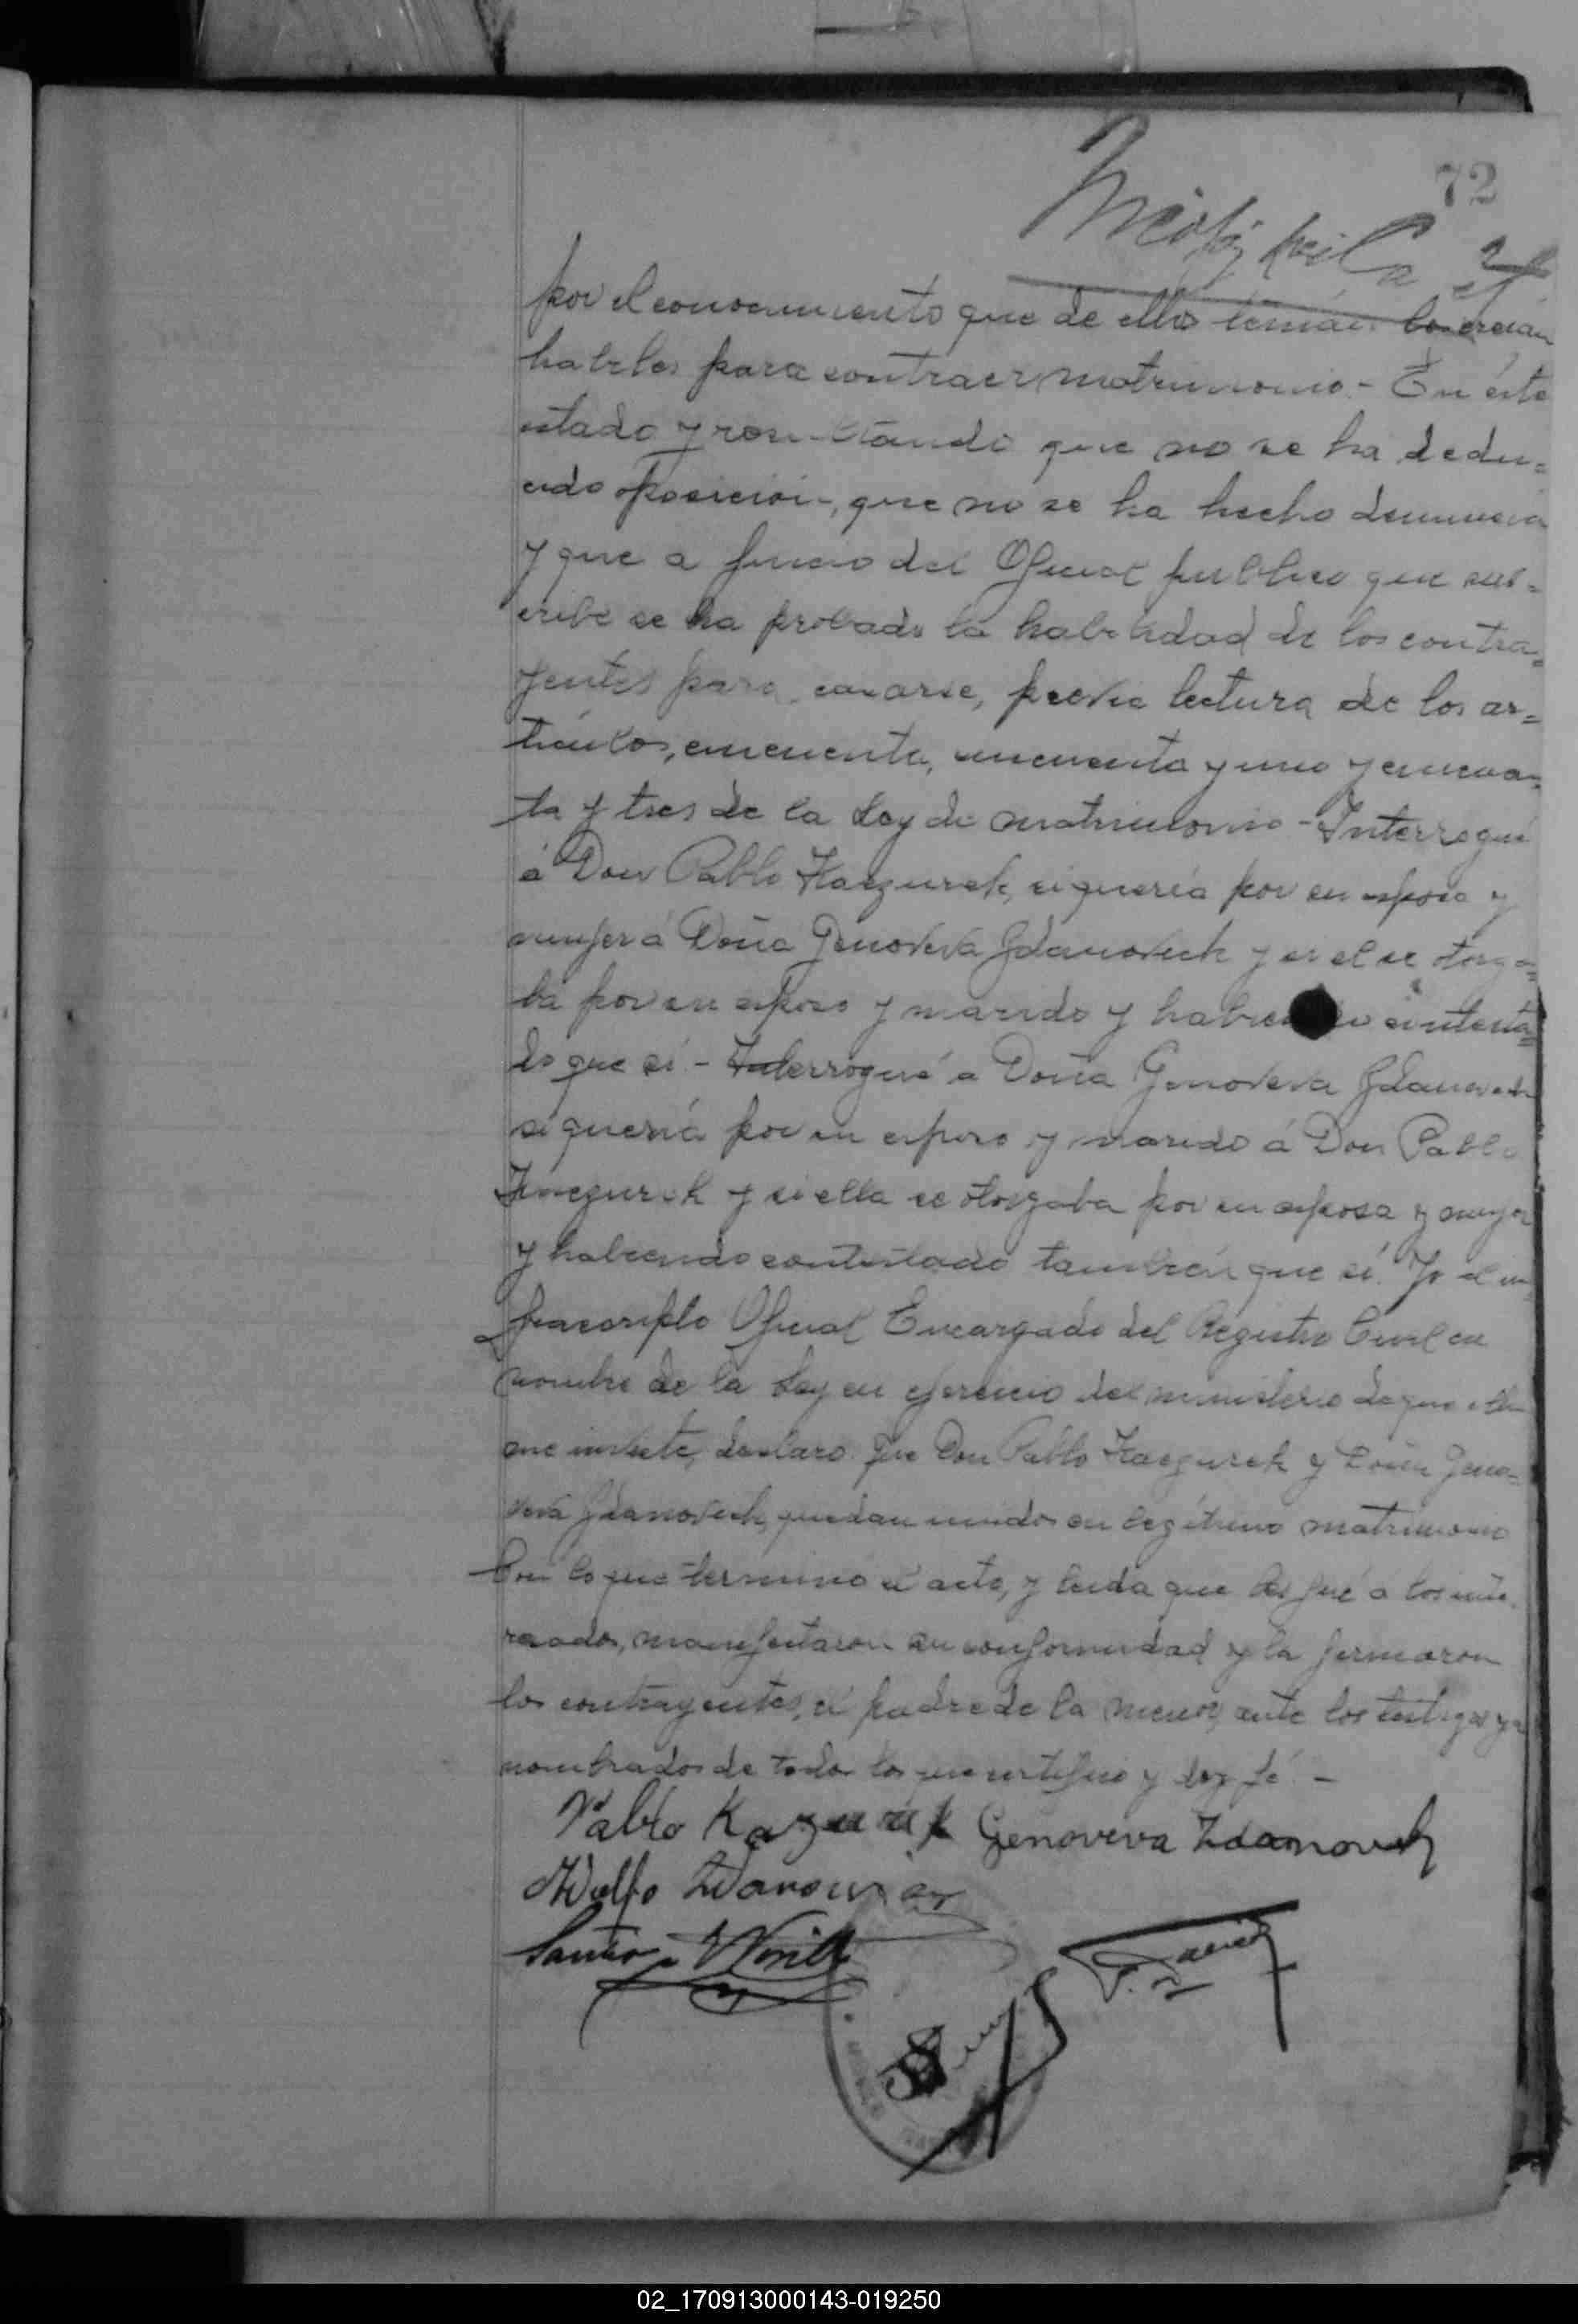 72
por el conocimiento que de ellos tenían los creían
habiles para contraer matrimonio.- En éste
estado y resultando que no se ha dedu=
cido oposición, que no se ha hecho denuncia
y que a juicio del Oficial publico que sus=
cribe se ha probado la habilidad de los contra=
yentes para casarse, previa lectura de los ar=
tículos, cincuenta, cincuenta y uno y cincuen=
ta y tres de la Ley de matrimonio - Interrogué
á Don Pablo Kaczurek, si quería por su esposa y
mujer á Doña Genoveva Zdanovich y si el se otorga=
ba por su esposo y marido y habiendo contesta=
do que sí.- Interrogué a Doña Genoveva Zdanovich
si quería por su esposo y marido á Don Pablo
Kaczurek y si ella se otorgaba por su esposa y mujer
y habiendo contestado también que sí. Yo el in=
frascripto Oficial Encargado del Registro Civil en
nombre de la Ley en ejercicio del ministerio de que ella
me inviste, declaro que Don Pablo Kaczurek y Doña Geno=
veva Zdanovich, quedan unidos en legítimo matrimonio
Con lo que terminó el acto, y leida que les fué a los inte=
resados, manifestaron su conformidad y la firmaron
los contrayentes, el padre de la menor, ante los testigos ya
nombrados de todo lo que certifico y doy fé. -
Pablo Kazurek Genoveva Zdanovich
Adolfo
02_170913000143-019250